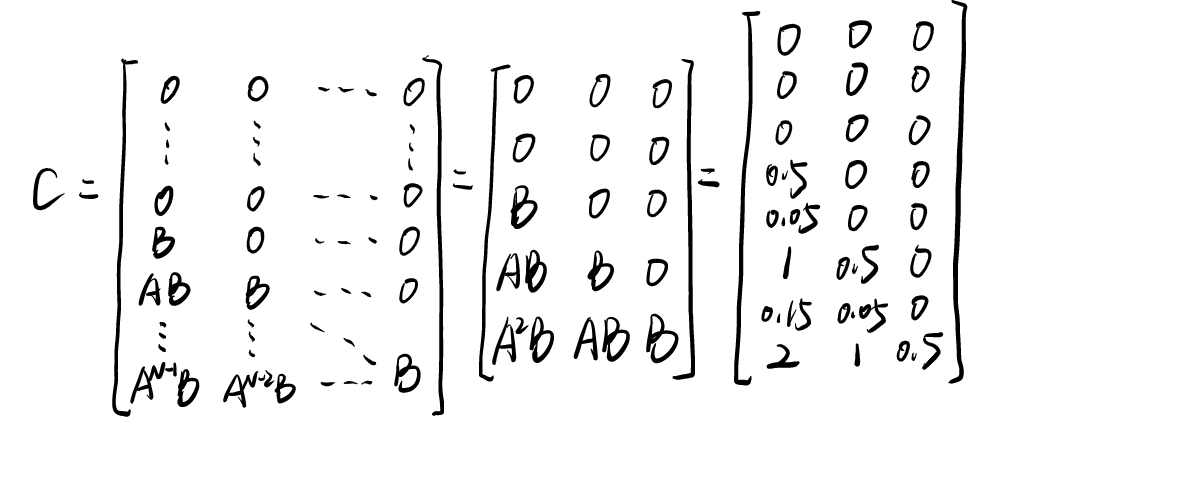 C =
0 0 --- 0
⋮ ⋮ ⋮
0 0 --- 0
B 0 --- 0
AB B --- 0
⋮ ⋮ ⋱
A^{N-1}B A^{N-2}B --- B
=
0 0 0
0 0 0
B 0 0
AB B 0
A²B AB B
=
0 0 0
0 0 0
0 0 0
0.5 0 0
0.05 0 0
1 0.5 0
0.15 0.05 0
2 1 0.5